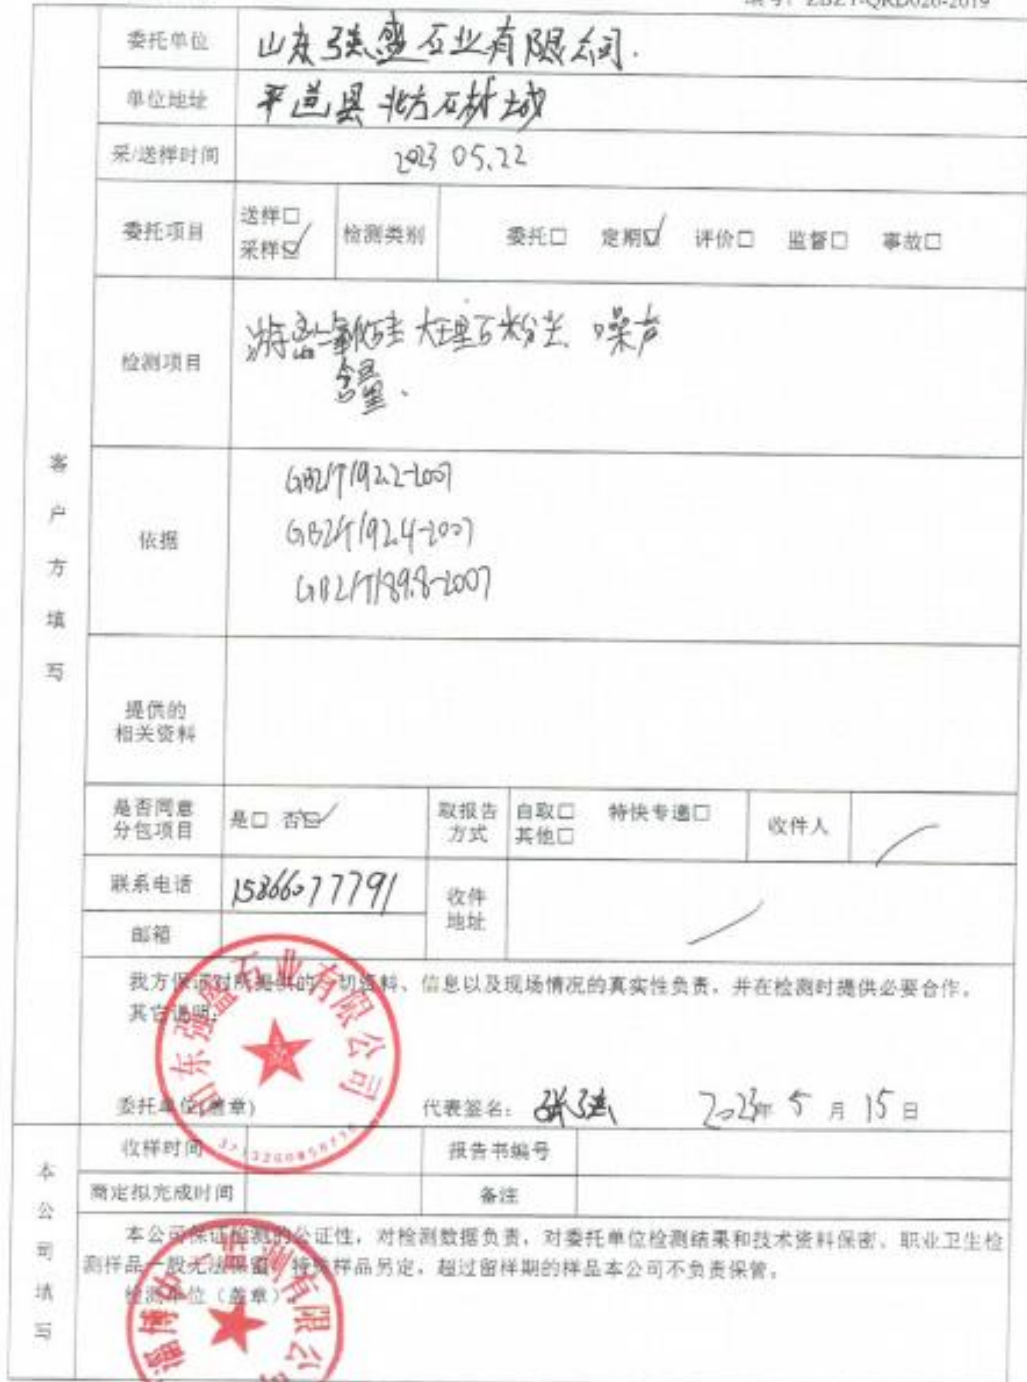 编号：ZBZY-QRD026-2019
委托单位 山东强盛石业有限公司.
单位地址 平邑县北方石材城
采/送样时间 2023 05.22
委托项目 送样□ 采样☑ 检测类别 委托□ 定期☑ 评价□ 监督□ 事故□
检测项目 游离二氧化硅 大理石粉尘 噪声
含量.
客户方填写
依据 GBZ/T192.2-2007
GBZ/T192.4-2007
GBZ/T189.8-2007
提供的
相关资料
是否同意
分包项目 是□ 否☑ 取报告
方式 自取□ 特快专递□
其他□ 收件人
联系电话 15866077791 收件
地址
邮箱
我方保证对所提供的一切资料、信息以及现场情况的真实性负责，并在检测时提供必要合作。
其它说明：
山东强盛石业有限公司
委托单位(盖章) 代表签名： 张强 2023年 5 月 15 日
收样时间 报告书编号
商定拟完成时间 备注
本公司填写
本公司保证检测的公证性，对检测数据负责，对委托单位检测结果和技术资料保密，职业卫生检
测样品一般无法保留，特殊样品另定，超过留样期的样品本公司不负责保管。
检测单位（盖章）
淄博 检测有限公司